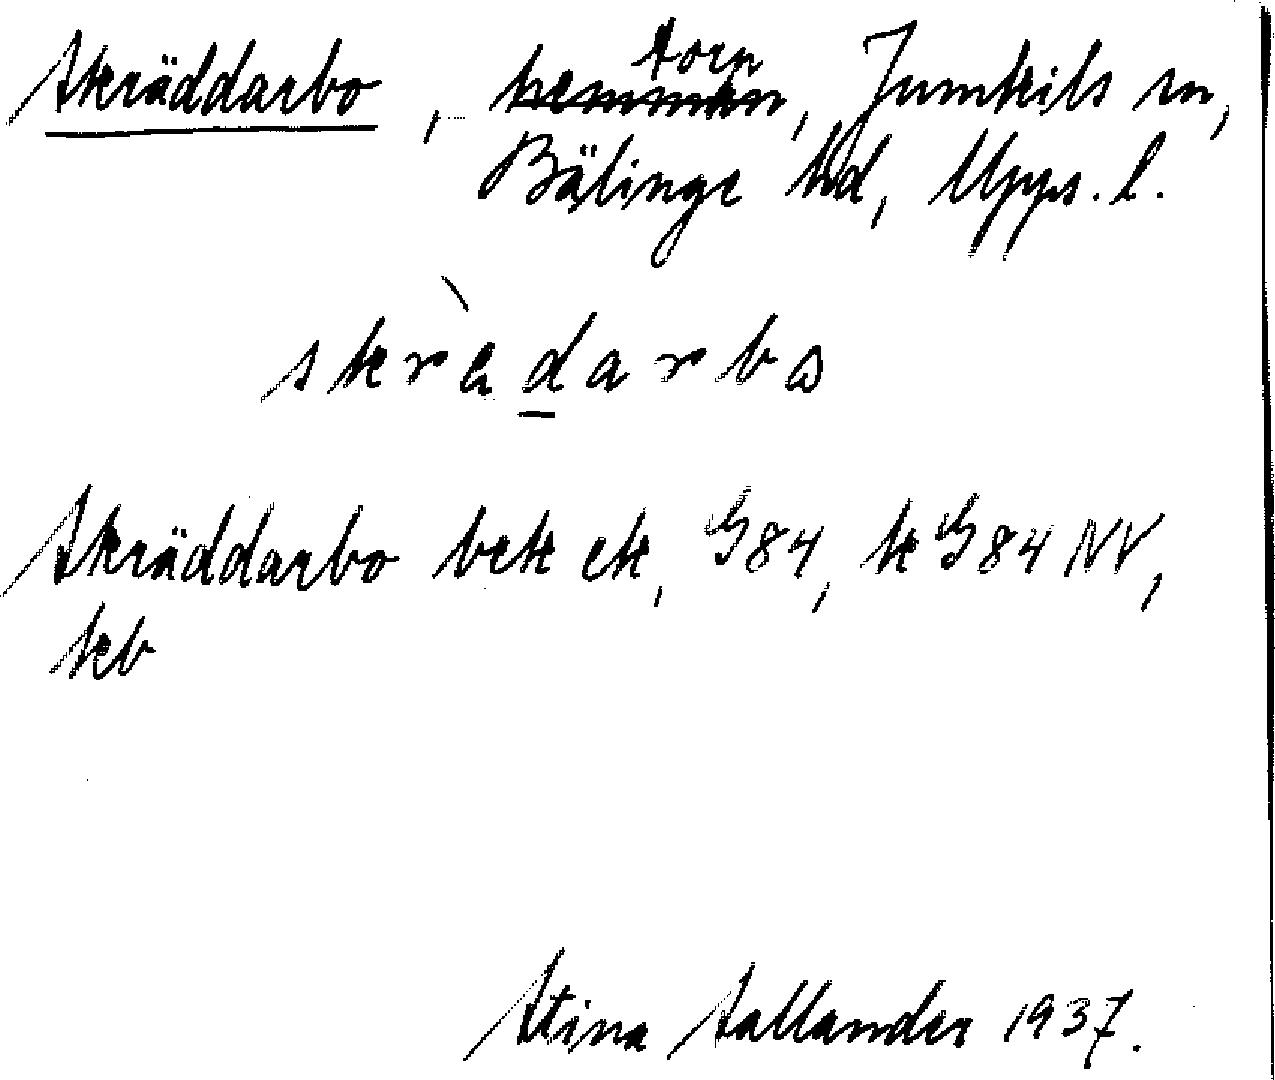 Skräddarbo, hemman, torp, Jumkils sn,
Bälinge hd, Upps. l.
skrädarbo
Skräddarbo bek ek, G84, k G84 NV,
kb
Stina Sallander 1937.